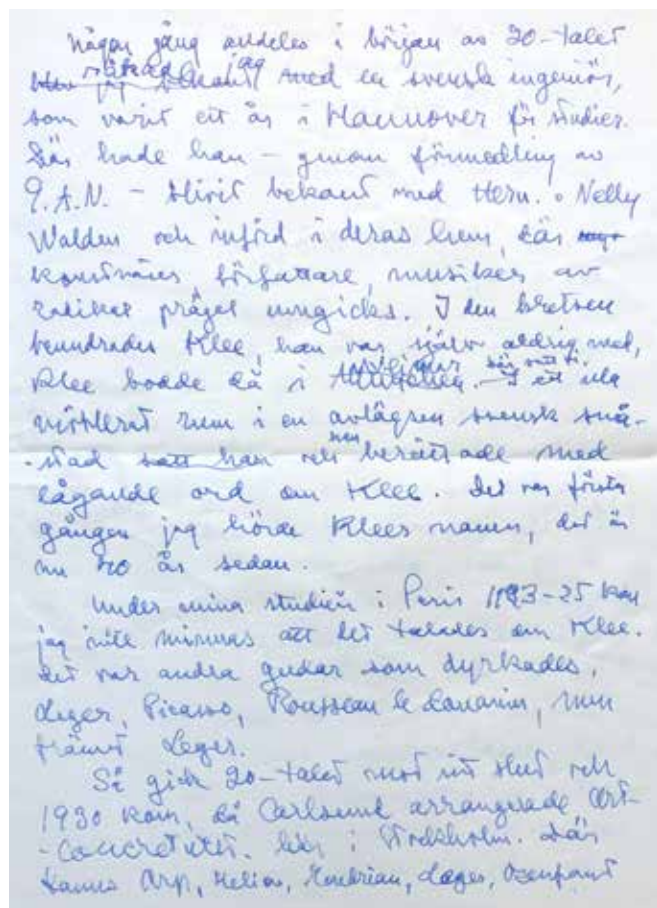 Någon gång alldeles i början av 20-talet
råkade jag med en svensk ingeniör,
som varit ett år i Hannover för studier.
Där hade han – genom förmedling av
G.A.N. – blivit bekant med Herw. o Nelly
Walden och införd i deras hem, där
konstnärer, författare, musiker av
radikal prägel umgicks. I den kretsen
beundrades Klee, han var själv aldrig med,
Klee bodde då i I ett illa
möblerat rum i en avlägsen svensk små-
-stad satt han och berättade med
lågande ord om Klee. Det var första
gången jag hörde Klees namn, det är
nu 40 år sedan.
Under mina studieår i Paris 1923-25 kan
jag inte minnas att det talades om Klee.
Det var andra gudar som dyrkades,
Leger, Picasso, Rousseau le douanier, men
främst Leger.
Så gick 20-talet mot sitt slut och
1930 kom, då Carlsund arrangerade Art-
-Concret utst. här i Stockholm. Där
fanns Arp, Helion, Mondrian, Leger, Ozenfant